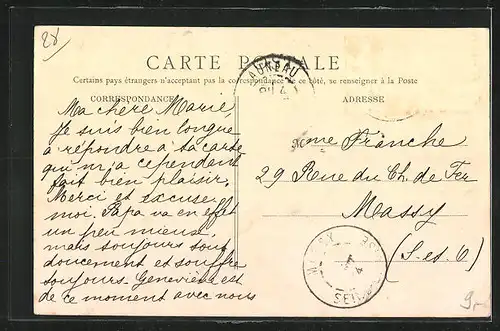 28
CARTE POSTALE
Certains pays étrangers n'acceptant pas la correspondance de ce côté, se renseigner à la Poste
CORRESPONDANCE
ADRESSE
AUNEAU
Ma chère Marie
Je suis bien longue
à répondre à ta carte
qui m'a cependant
fait bien plaisir.
Merci et excuse
moi. Papa va en effet
un peu mieux,
mais toujours tout
doucement et souffre
toujours. Geneviève est
de ce moment avec nous
Mme Franche
29 Rue du Ch. de Fer
Massy
(S-et-O)
MASSY
SEINE